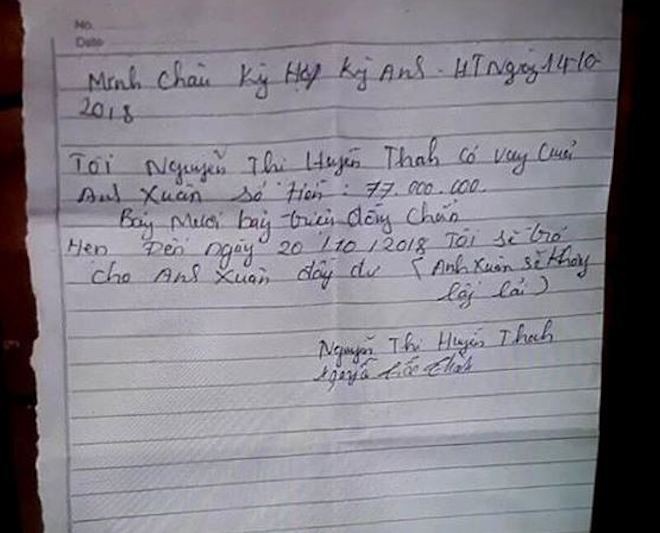 No.
Date
Minh Châu Kỳ Hợp Kỳ Anh - HT Ngày 14-10
2018
Tôi Nguyễn Thị Huyền Thanh có vay của
Anh Xuân số tiền : 77.000.000.
Bảy Mươi bảy triệu đồng chẵn
Hẹn Đến ngày 20/10/2018 Tôi sẽ trả
cho Anh Xuân đầy đủ (Anh Xuân sẽ không
lấy lãi)
Nguyễn Thị Huyền Thanh